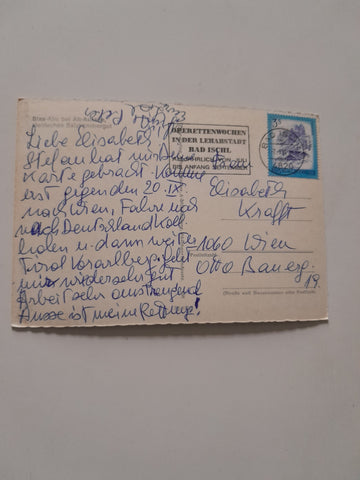 Blaa-Alm bei Alt-Aussee
Liebe Elisabeth
Stefan hat mir Deine
Karte gebracht. Komme
erst gegen den 20. IX.
nach Wien, Fahre noch
nach Deutschland
holen u. dann weiter
Tirol Vorarlberg.
mir wieder sehr gut
Arbeit sehr anstrengend
Aussee ist meine Rettung!
OPERETTENWOCHEN
IN DER LEHARSTADT
BAD ISCHL
ALLJÄHRLICH VON JULI
BIS ANFANG SEPTEMBER
4820
Frau
Elisabeth
Krafft
1060 Wien
Otto Bauerg.
19.
Postleitzahl
(Straße und Hausnummer oder Postfach)